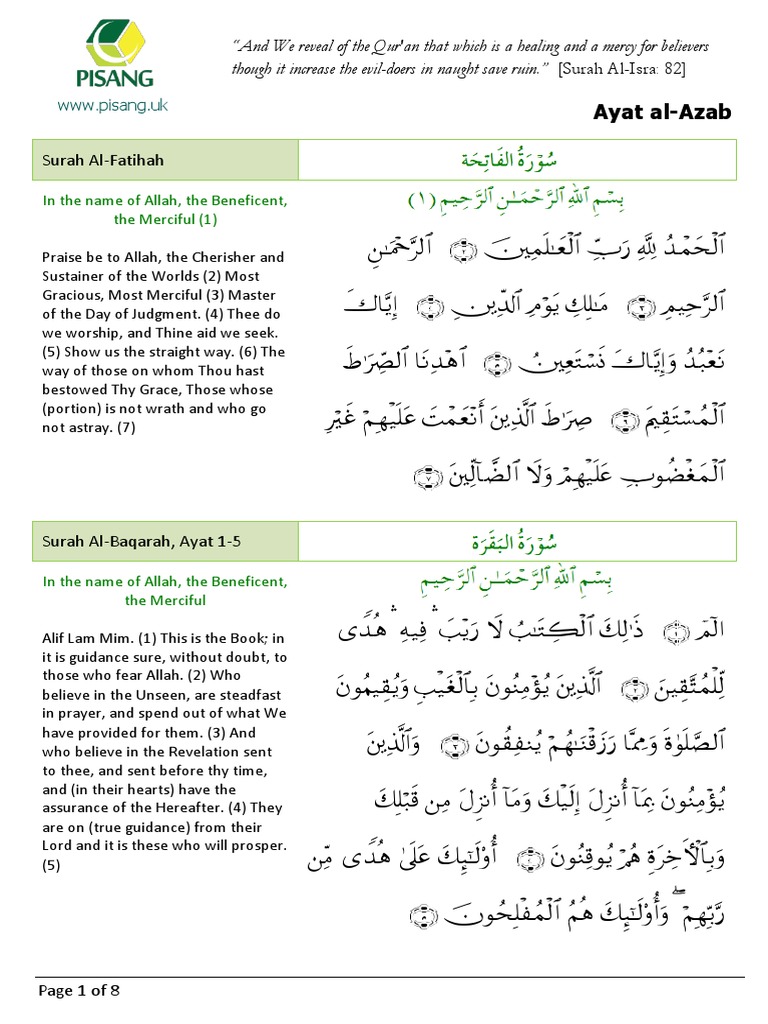 PISANG
www.pisang.uk
“And We reveal of the Qur'an that which is a healing and a mercy for believers
though it increase the evil-doers in naught save ruin.” [Surah Al-Isra: 82]
Ayat al-Azab
Surah Al-Fatihah
سُوْرَةُ الفَاتِحَة
In the name of Allah, the Beneficent,
the Merciful (1)
بِسْمِ ٱللَّهِ ٱلرَّحْمَـٰنِ ٱلرَّحِيمِ (١)
Praise be to Allah, the Cherisher and
Sustainer of the Worlds (2) Most
Gracious, Most Merciful (3) Master
of the Day of Judgment. (4) Thee do
we worship, and Thine aid we seek.
(5) Show us the straight way. (6) The
way of those on whom Thou hast
bestowed Thy Grace, Those whose
(portion) is not wrath and who go
not astray. (7)
ٱلْحَمْدُ لِلَّهِ رَبِّ ٱلْعَـٰلَمِينَ ﴿٢﴾ ٱلرَّحْمَـٰنِ
ٱلرَّحِيمِ ﴿٣﴾ مَـٰلِكِ يَوْمِ ٱلدِّينِ ﴿٤﴾ إِيَّاكَ
نَعْبُدُ وَإِيَّاكَ نَسْتَعِينُ ﴿٥﴾ ٱهْدِنَا ٱلصِّرَٰطَ
ٱلْمُسْتَقِيمَ ﴿٦﴾ صِرَٰطَ ٱلَّذِينَ أَنْعَمْتَ عَلَيْهِمْ غَيْرِ
ٱلْمَغْضُوبِ عَلَيْهِمْ وَلَا ٱلضَّآلِّينَ ﴿٧﴾
Surah Al-Baqarah, Ayat 1-5
سُوْرَةُ البَقَرَة
In the name of Allah, the Beneficent,
the Merciful
بِسْمِ ٱللَّهِ ٱلرَّحْمَـٰنِ ٱلرَّحِيمِ
Alif Lam Mim. (1) This is the Book; in
it is guidance sure, without doubt, to
those who fear Allah. (2) Who
believe in the Unseen, are steadfast
in prayer, and spend out of what We
have provided for them. (3) And
who believe in the Revelation sent
to thee, and sent before thy time,
and (in their hearts) have the
assurance of the Hereafter. (4) They
are on (true guidance) from their
Lord and it is these who will prosper.
(5)
الٓمٓ ﴿١﴾ ذَٰلِكَ ٱلْكِتَـٰبُ لَا رَيْبَ ۛ فِيهِ ۛ هُدًى
لِّلْمُتَّقِينَ ﴿٢﴾ ٱلَّذِينَ يُؤْمِنُونَ بِٱلْغَيْبِ وَيُقِيمُونَ
ٱلصَّلَوٰةَ وَمِمَّا رَزَقْنَـٰهُمْ يُنفِقُونَ ﴿٣﴾ وَٱلَّذِينَ
يُؤْمِنُونَ بِمَآ أُنزِلَ إِلَيْكَ وَمَآ أُنزِلَ مِن قَبْلِكَ
وَبِٱلْـَٔاخِرَةِ هُمْ يُوقِنُونَ ﴿٤﴾ أُو۟لَـٰٓئِكَ عَلَىٰ هُدًى مِّن
رَّبِّهِمْ ۖ وَأُو۟لَـٰٓئِكَ هُمُ ٱلْمُفْلِحُونَ ﴿٥﴾
Page 1 of 8